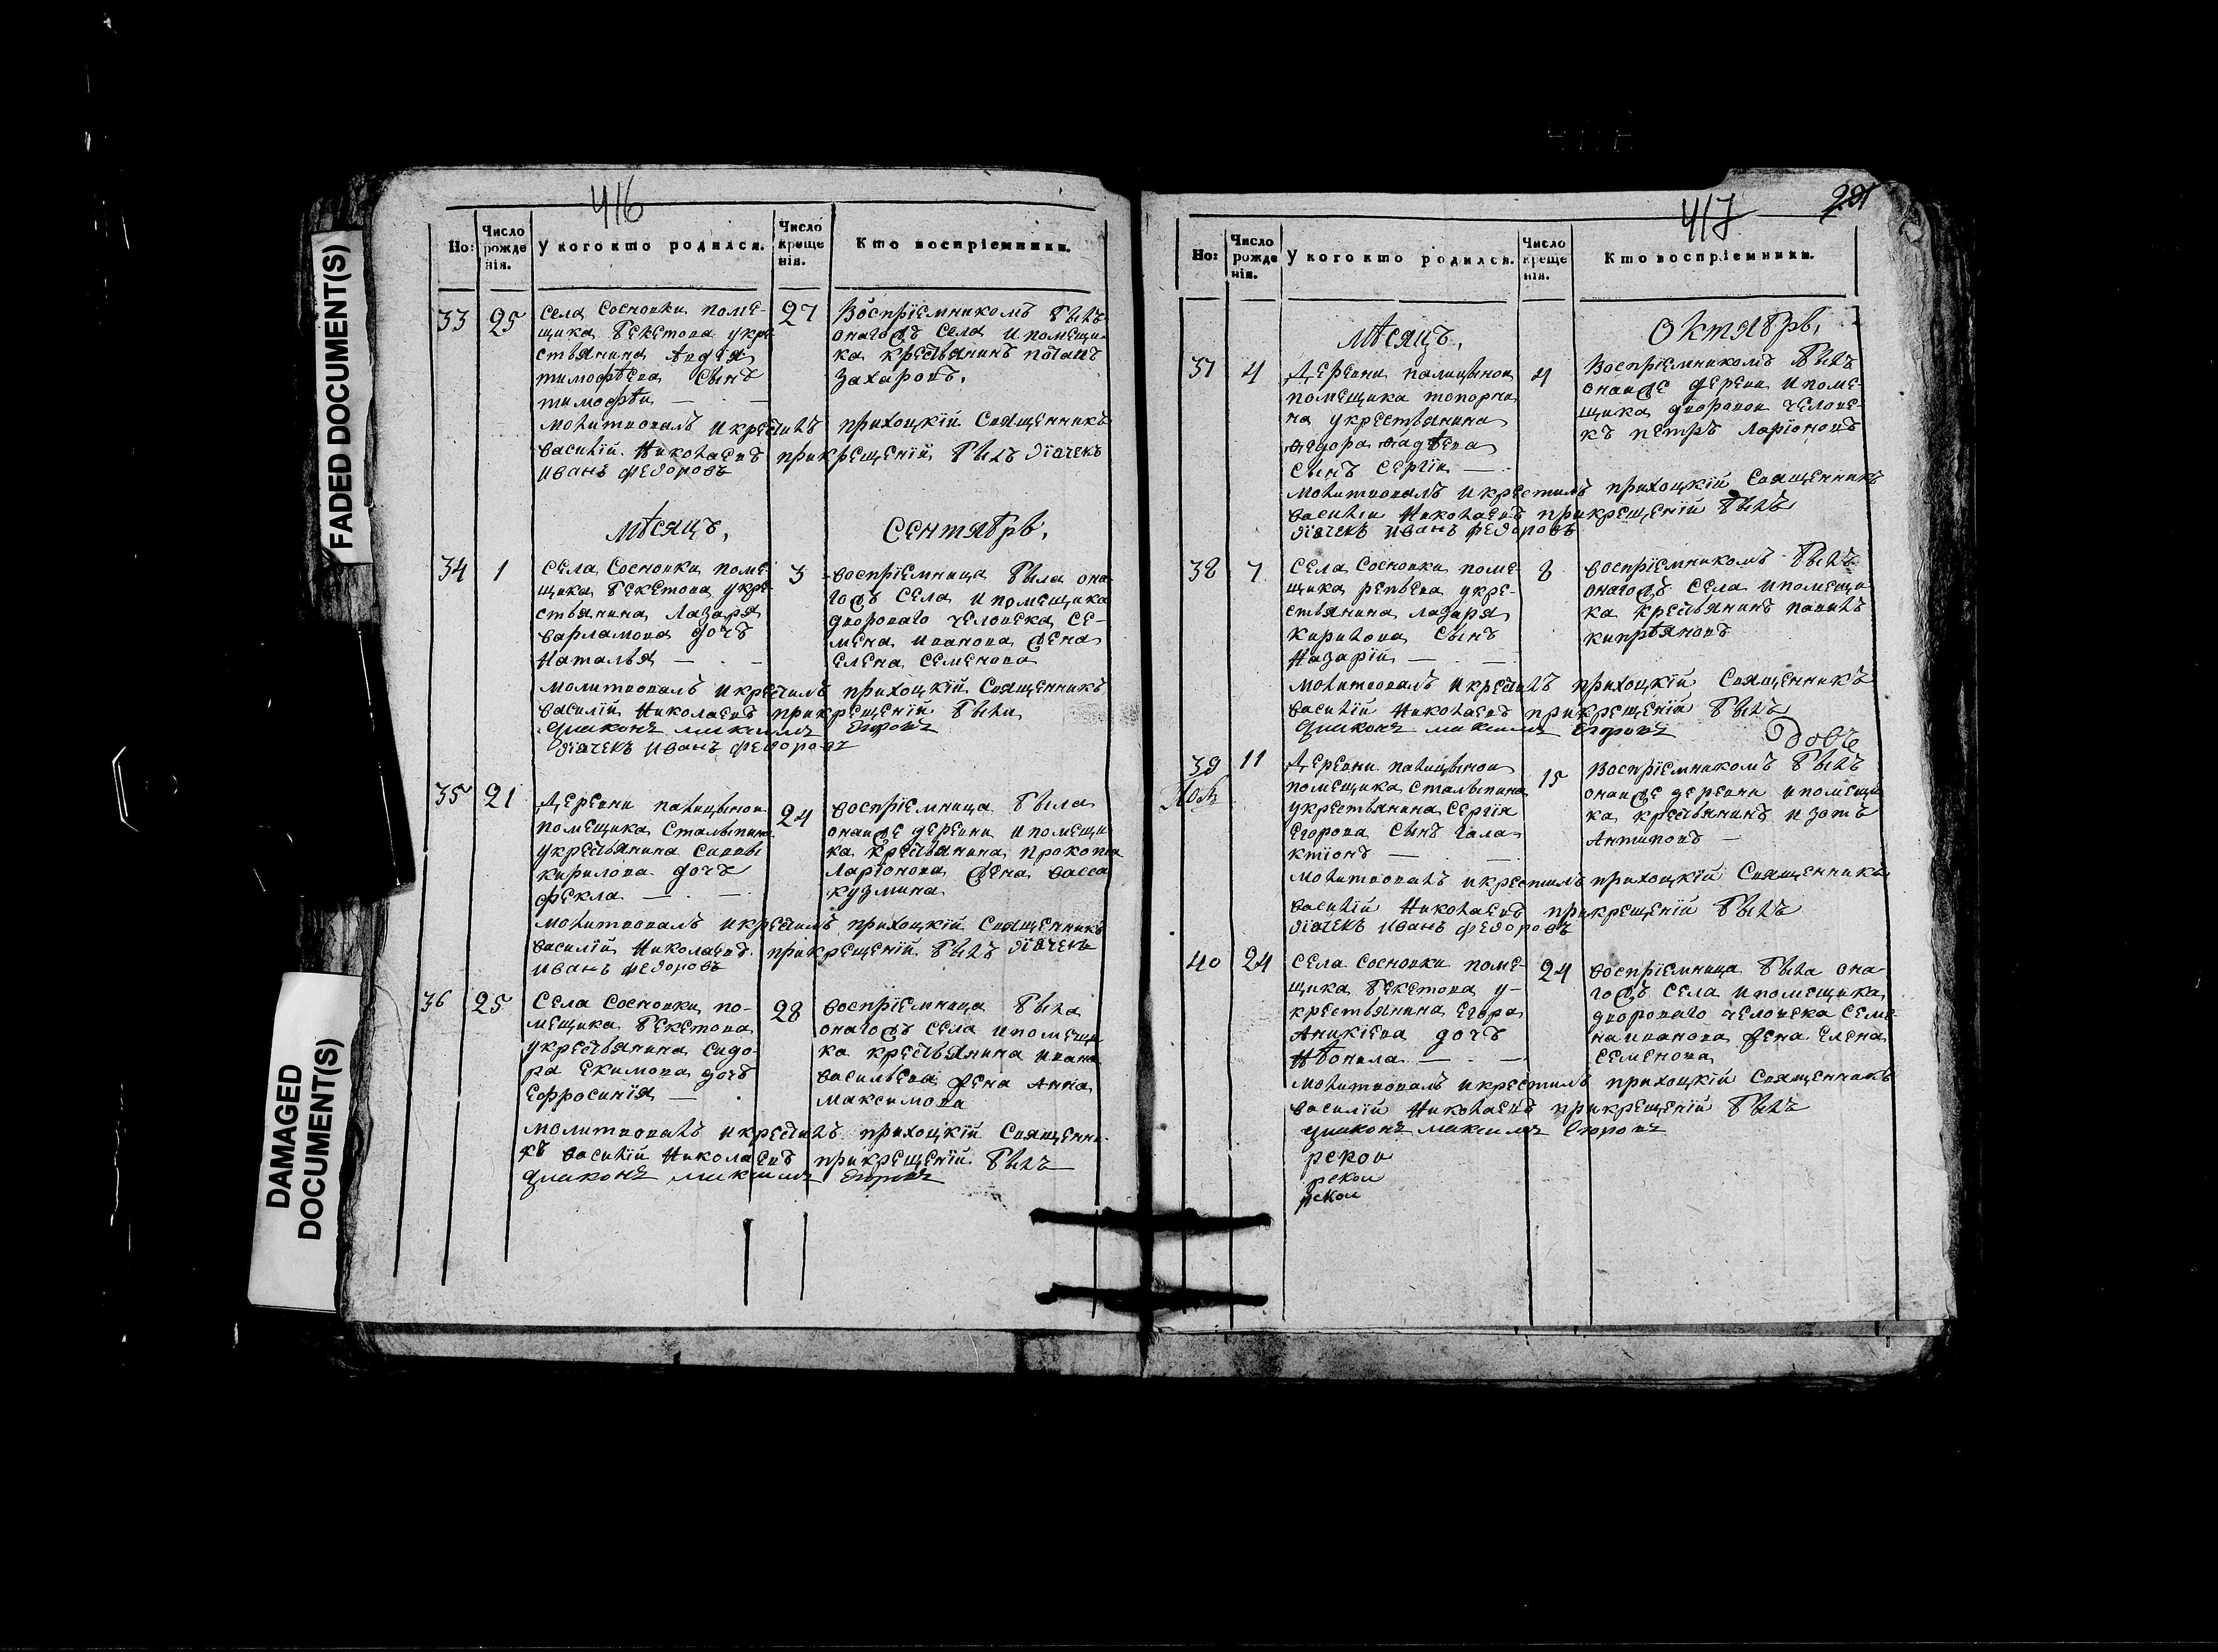 FADED DOCUMENT(S)
DAMAGED DOCUMENT(S)
416
Но:
Число рожде нія.
У кого кто родился.
Число креще нія.
Кто воспріемники.
33
25
села Сосновки поме-
щика Бекетова укре
стьянина Авдѣя
тимофѣева сынъ
тимофѣи
27
Воспріемникомъ былъ
онагожъ села ипомѣщи
ка крестьянинъ потапъ
Захаровъ.
молитвовалъ икрестилъ прихоцкій Священникъ
василій Николаевъ прикрещеній былъ дїачекъ
иванъ федоровъ
мѣсяцъ, Сентябрь,
34
1
села Сосновки поме
щика Бекетова укре
стьянина Лазаря
варламова дочь
Наталья
3
воспріемница была она
гожъ села ипомещика
двороваго человека се-
мена иванова жена
елена семенова
молитвовалъ икрестилъ прихоцкій Священникъ
василій Николаевъ прикрещеній были
диаконъ максимъ Егоровъ
дїачекъ иванъ федоровъ
35
21
деревни палицыной
помещика Сталыпина
укрестьянина Саввы
кирилова дочь
фекла
24
воспріемница была
онаижъ деревни ипомещи
ка крестьянина прокопья
Ларїонова жена васса
кузмина
молитвовалъ икрестилъ прихоцкій Священникъ
василій Николаевъ прикрещеній былъ дїачекъ
иванъ федоровъ
36
25
Села Сосновки по-
мещика Бекетова
укрестьянина сидо-
ра екимова дочь
Ефросинїя
28
воспріемница была
онагожъ села ипомещи
ка крестьянина ивана
васильева жена Анна
максимова
молитвовалъ икрестилъ прихоцкій Священни-
къ василій Николаевъ прикрещеній былъ
диаконъ максимъ Егоровъ
417
Но:
Число рожде нія.
У кого кто родился.
Число креще нія.
Кто воспріемники.
мѣсяцъ, Октябрь,
37
4
Деревни палицыной
помещика топорни
на укрестьянина
федора фадѣева
сынъ Сергїи
4
Воспріемникомъ былъ
онаиже дереви ипоме-
щика дворовои челове-
къ петръ Ларїоновъ
молитвовалъ икрестилъ прихоцкій Священникъ
василій Николаевъ прикрещеній былъ
дїачекъ иванъ федоровъ
38
7
Села Сосновки поме-
щика репьева укре-
стьянина лазаря
кирилова сынъ
Назарїй
8
воспріемникомъ былъ
онагожъ села ипомещи
ка крестьянинъ павилъ
кипрѣяновъ
молитвовалъ икрестилъ прихоцкій Священникъ
василій Николаевъ прикрещеній былъ
диаконъ максимъ Егоровъ
39
11
Деревни палицынои
помещика Сталыпина
укрестьянина Сергїя
Егорова сынъ гала
ктїонъ
15
Воспріемникомъ былъ
онаиже деревни ипомещи
ка крестьянинъ изотъ
Антиповъ
молитвовалъ икрестилъ прихоцкій Священникъ
василій Николаевъ прикрещеній былъ
дїачекъ иванъ федоровъ
40
24
села Сосновки поме-
щика Бекетова у-
крестьянина Егора
Аникїева дочь
24
воспріемница была она
гожъ села ипомещика
двороваго человека семе
на иванова жена елена
семенова
молитвовалъ икрестилъ прихоцкій Священникъ
василій Николаевъ прикрещеній былъ
диаконъ максимъ Егоровъ